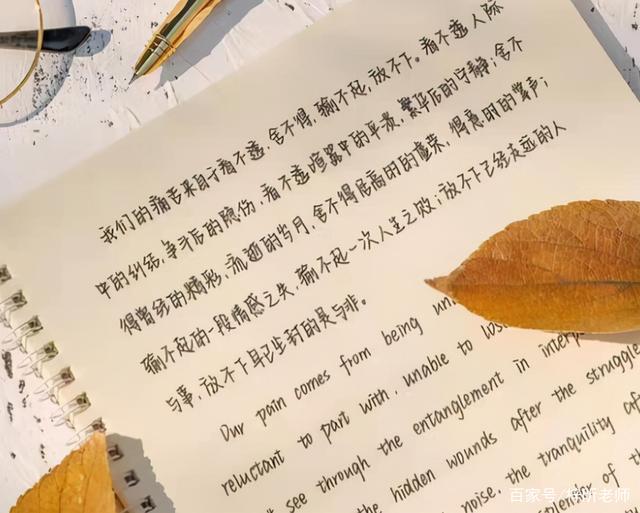 我们的痛苦来自于看不透,舍不得,输不起,放不下。看不透人际
中的纠结,争斗后的隐伤,看不透喧嚣中的平淡,繁华后的宁静;舍不
得曾经的精彩,流逝的岁月,舍不得居高时的虚荣,得意时的掌声;
输不起的一段情感之失,输不起一次人生之败;放不下已经走远的人
与事,放不下早已尘封的是与非。
Our pain comes from being
reluctant to part with, unable to
see through the entanglement in
the hidden wounds after the struggle
noise, the tranquility
of
百家号/梓昕老师